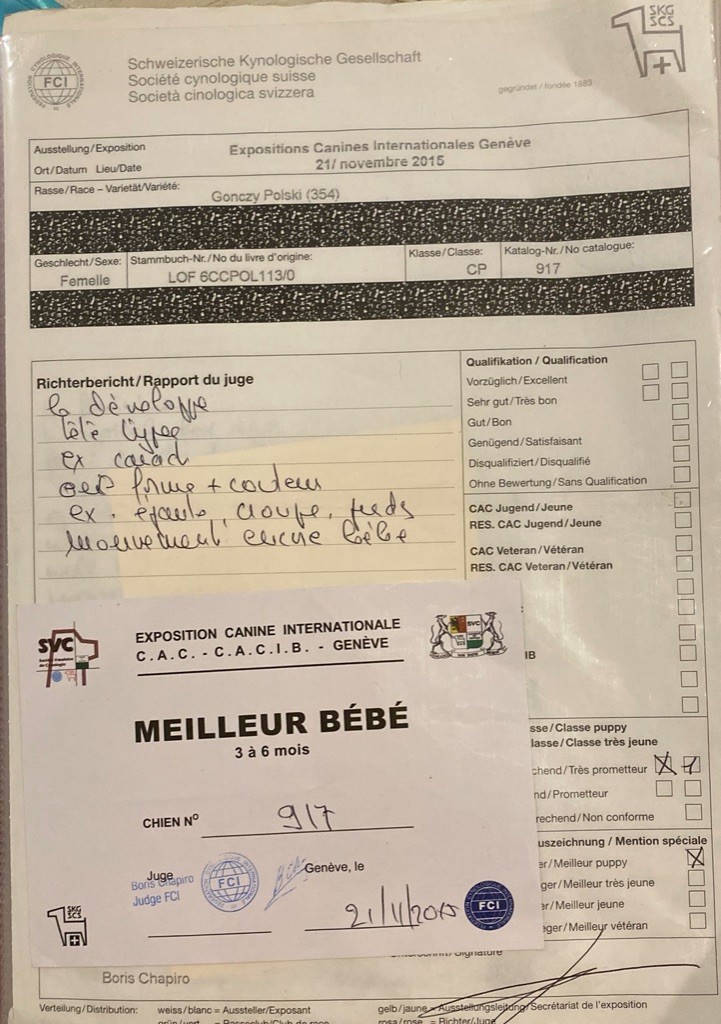 SKG
SCS
FCI
Schweizerische Kynologische Gesellschaft
Société cynologique suisse
Società cinologica svizzera
gegründet / fondée 1883
Ausstellung/Exposition
Expositions Canines Internationales Genève
Ort/Datum Lieu/Date
21/ novembre 2015
Rasse/Race – Varietät/Variété:
Gonczy Polski (354)
Geschlecht/Sexe: Stammbuch-Nr./No du livre d'origine: Klasse/Classe: Katalog-Nr./No catalogue:
Femelle LOF 6CCPOL113/0 CP 917
Richterbericht/Rapport du juge
développe
tête typée
ex
forme + couleur
ex. épaule, croupe, pieds
mouvement encore bébé
Qualifikation / Qualification
Vorzüglich/Excellent
Sehr gut/Très bon
Gut/Bon
Genügend/Satisfaisant
Disqualifiziert/Disqualifié
Ohne Bewertung/Sans Qualification
CAC Jugend/Jeune
RES. CAC Jugend/Jeune
CAC Veteran/Vétéran
RES. CAC Veteran/Vétéran
IB
sse/Classe puppy
lasse/Classe très jeune
chend/Très prometteur
nd/Prometteur
rechend/Non conforme
uszeichnung / Mention spéciale
er/Meilleur puppy
ger/Meilleur très jeune
er/Meilleur jeune
eger/Meilleur vétéran
SVC
EXPOSITION CANINE INTERNATIONALE
C.A.C. - C.A.C.I.B. - GENÈVE
SVC
MEILLEUR BÉBÉ
3 à 6 mois
CHIEN Nº 917
Juge
Boris Chapiro
Judge FCI
FCI
Genève, le
21/11/2015
FCI
SKG
SCS
Signature
Boris Chapiro
Verteilung/Distribution: weiss/blanc = Aussteller/Exposant gelb/jaune = Ausstellungsleitung/Secrétariat de l'exposition
grün/vert = Rasseclub/Club de race rosa/rose = Richter/Juge